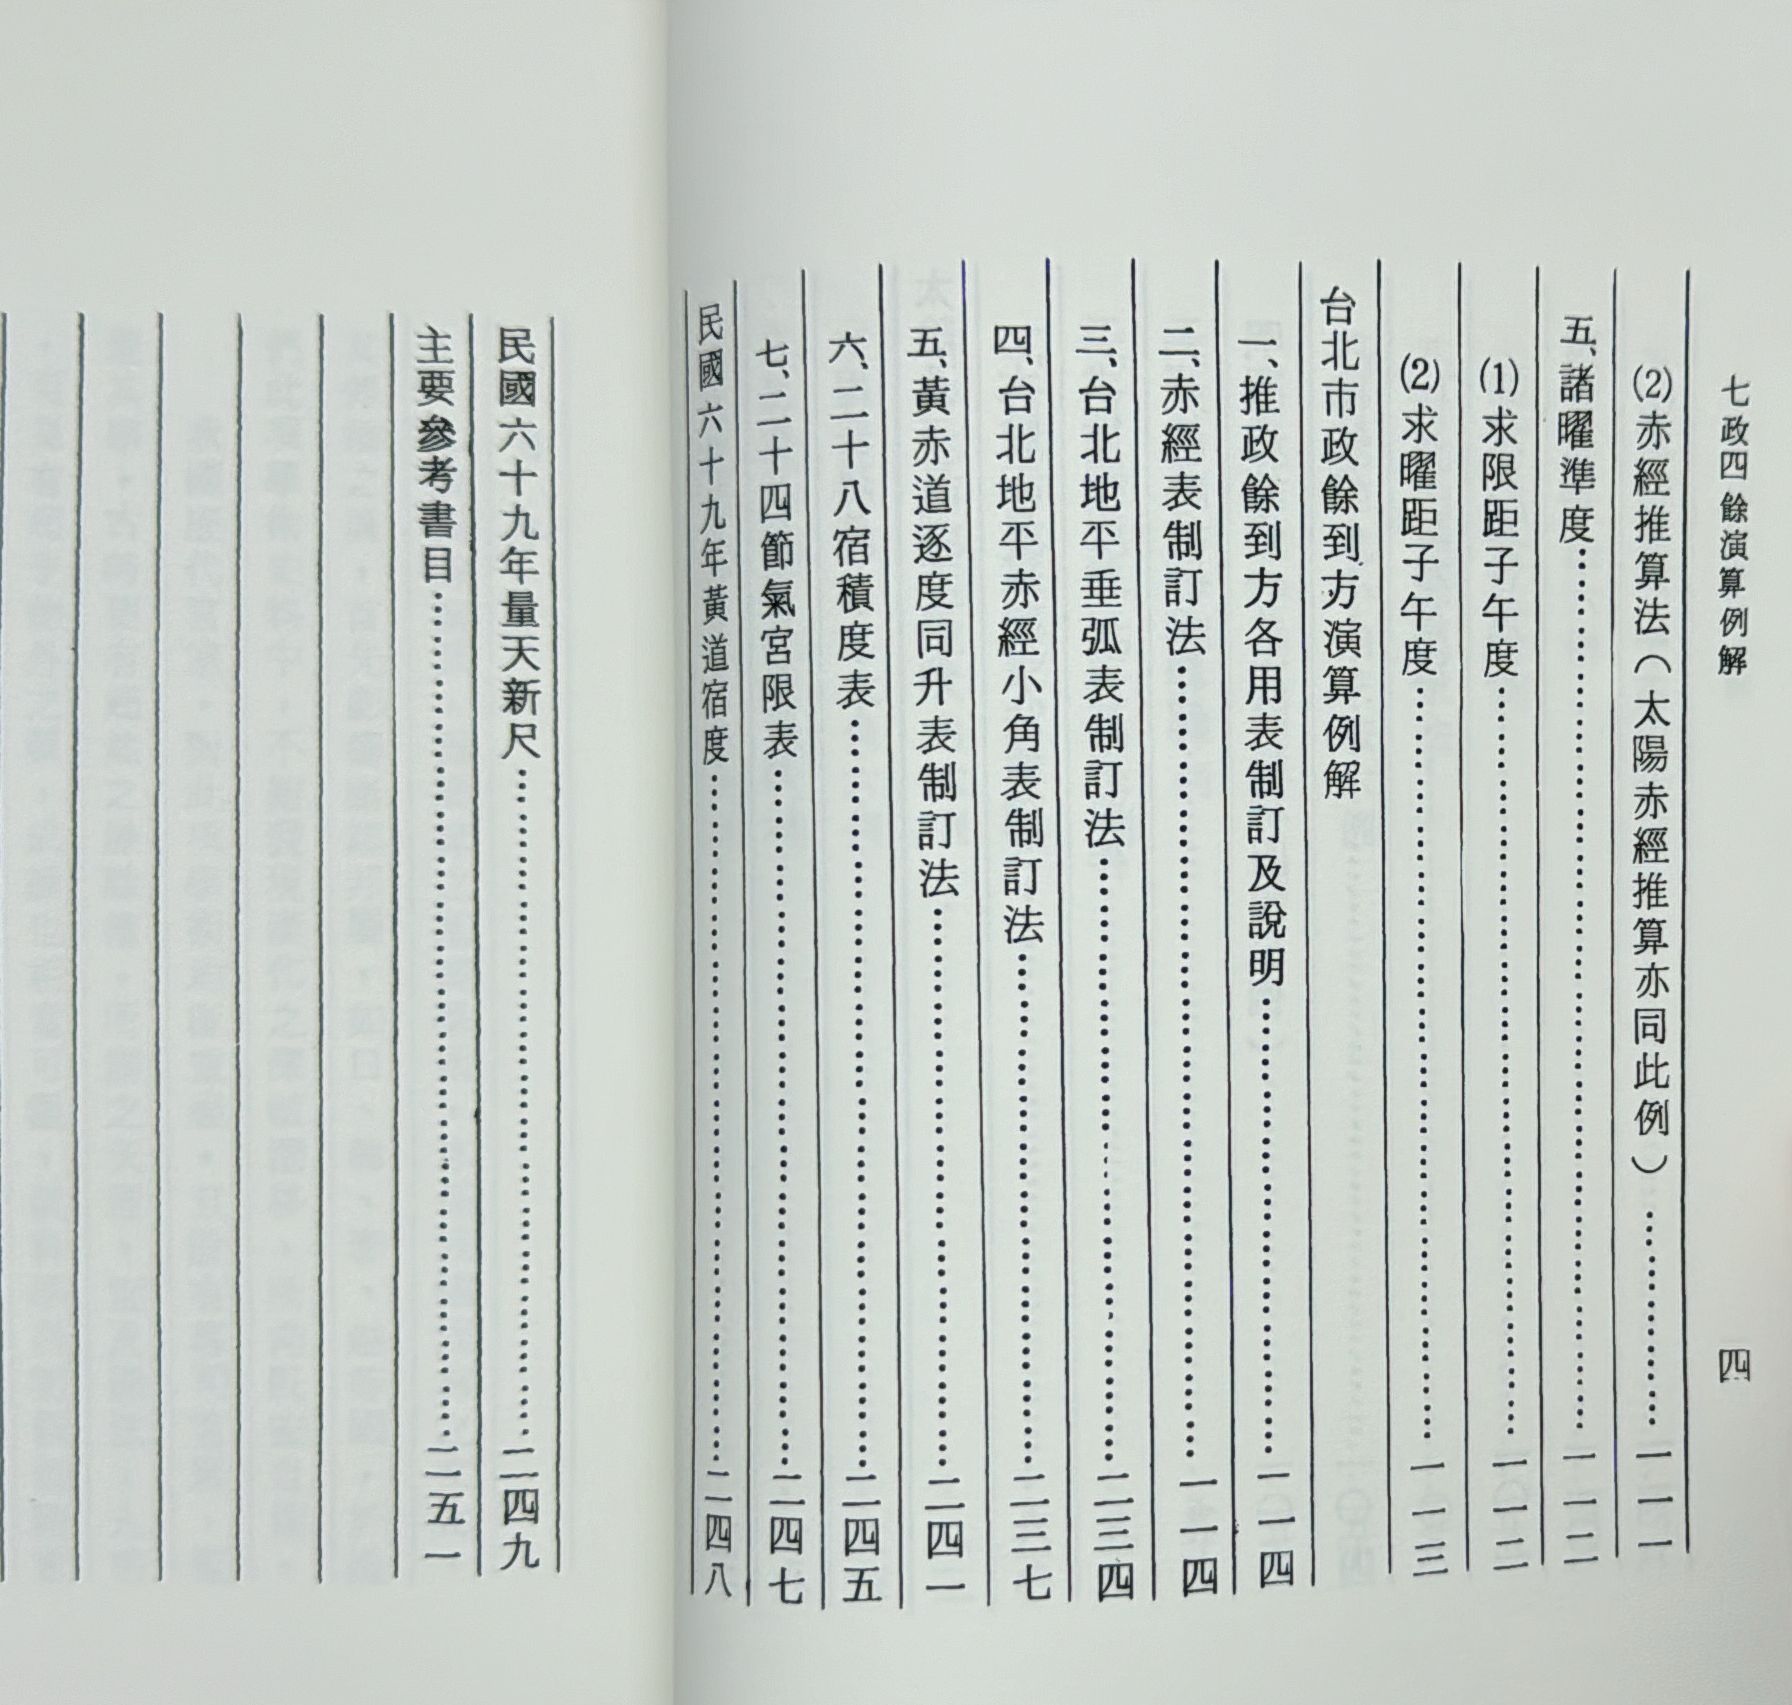 七政四餘演算例解　四
⑵赤經推算法（太陽赤經推算亦同此例）……一一一
五、諸曜準度……一一二
⑴求限距子午度……一一二
⑵求曜距子午度……一一三
台北市政餘到方演算例解
一、推政餘到方各用表制訂及說明……一一四
二、赤經表制訂法……一一四
三、台北地平垂弧表制訂法……二三四
四、台北地平赤經小角表制訂法……二三七
五、黃赤道逐度同升表制訂法……二四一
六、二十八宿積度表……二四五
七、二十四節氣宮限表……二四七
民國六十九年黃道宿度……二四八
民國六十九年量天新尺……二四九
主要參考書目……二五一